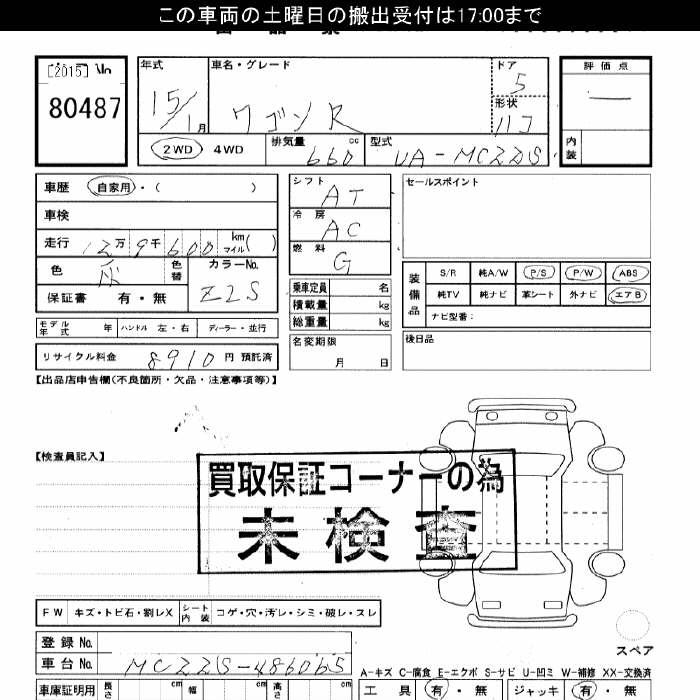 この車両の土曜日の搬出受付は17:00まで
[2015] No
80487
年式 車名・グレード ドア 評価点
15/1月 ワゴンR 5 —
形状 ハコ
2WD 4WD 排気量 660 cc 型式 UA-MC22S 内装
車歴 自家用・( ) シフト AT セールスポイント
車検 冷房 AC
走行 12万9千600 km マイル( ) 燃料 G
色 灰 色替 カラーNo. Z2S
保証書 有・無
乗車定員 名
積載量 kg
総重量 kg
装備品 S/R 純A/W P/S P/W ABS
純TV 純ナビ 革シート 外ナビ エアB
ナビ型番:
モデル年式 年 ハンドル 左・右 ディーラー・並行
名変期限 月 日
後日品
リサイクル料金 8910 円 預託済
【出品店申告欄(不良箇所・欠品・注意事項等)】
【検査員記入】
買取保証コーナーの為
未検査
FW キズ・トビ石・割レX シート内装 コゲ・穴・汚レ・シミ・破レ・スレ
スペア
登録No.
車台No. MC22S-486065
A-キズ C-腐食 E-エクボ S-サビ U-凹ミ W-補修 XX-交換済
車庫証明用 長さ cm 幅 cm 高さ cm 工具 有・無 ジャッキ 有・無